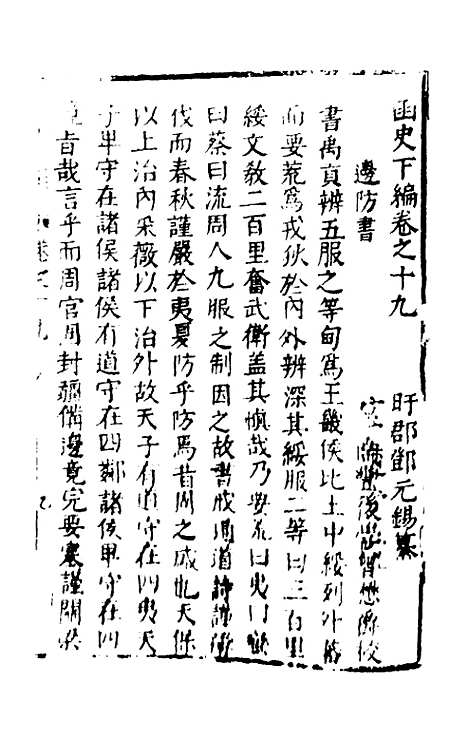 函史下編卷之十九
盱郡鄧元錫纂
邊防書
後學
書禹貢辨五服之等甸為王畿侯比土中綏列外
而要荒為戎狄於內外辨深其綏服二等曰三百里
綏文教二百里奮武衛蓋其慎哉乃要荒曰夷曰蠻
曰蔡曰流周人九服之制因之故書戒通道詩謹
伐而春秋謹嚴於夷夏防乎防焉昔周之盛也天保
以上治內采薇以下治外故天子有道守在四夷天
子卑守在諸侯諸侯有道守在四鄰諸侯卑守在四
竟旨哉言乎而周官周封疆備邊竟完要塞謹關